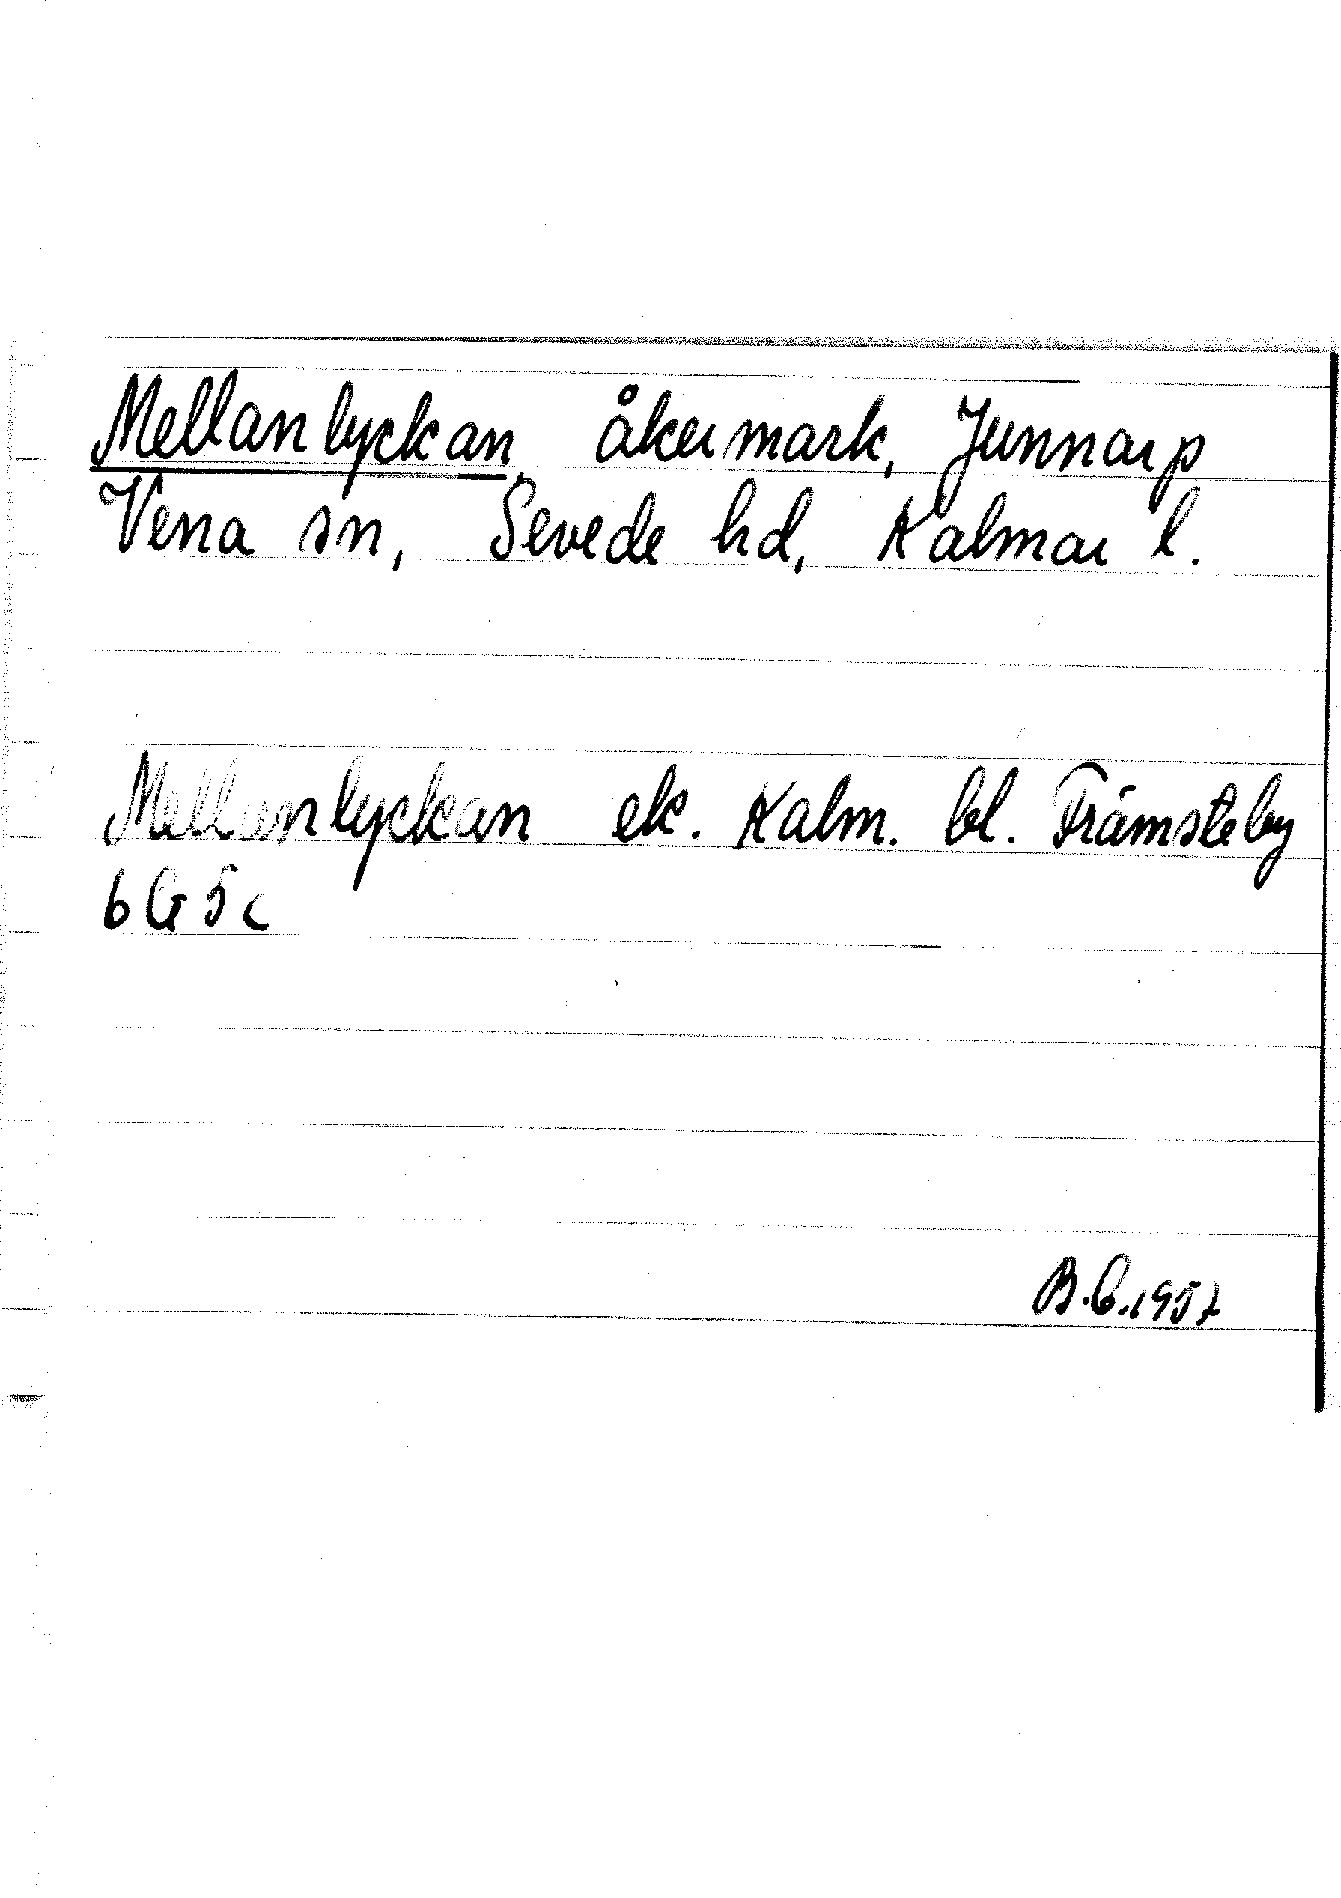 Mellanlyckan, åkermark, Junnarp
Vena sn, Sevede hd, Kalmar l.
Mellanlyckan ek. Kalm. bl. Främsteby
6G5c
B.C.1957